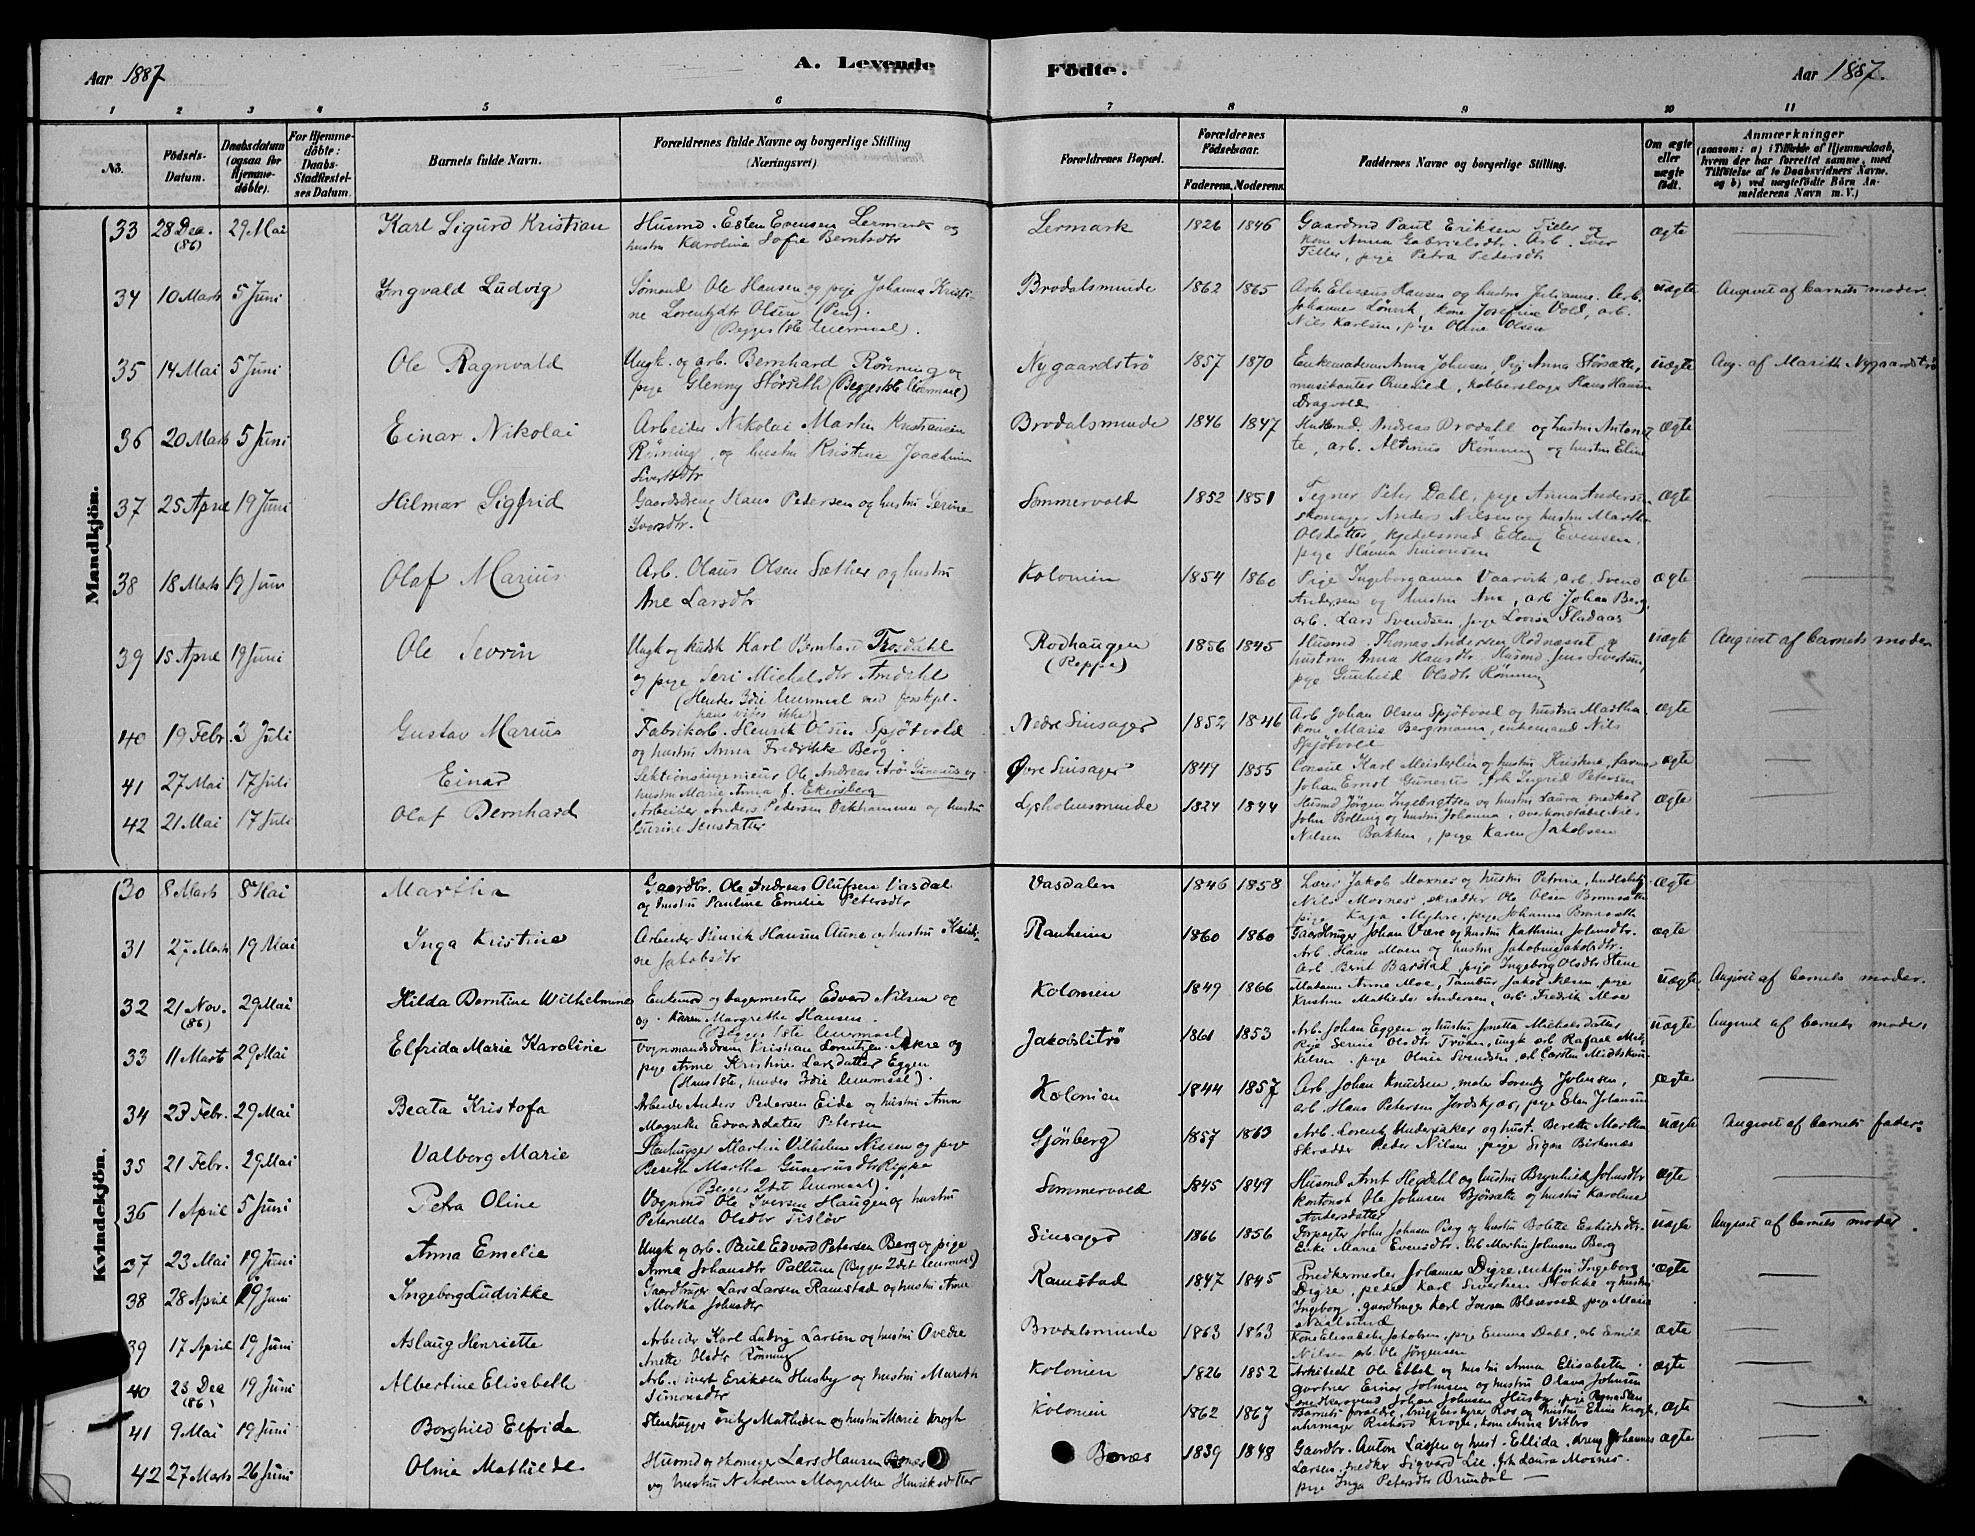 Aar 1887
A. Levende
Födte.
Aar 1887.
1 2 3 4 5 6 7 8 9 10 11
No.
Födsels-Datum.
Daabsdatum (ogsaa for Hjemmedöbte).
For Hjemmedöbte: Daabs-Stadfæstelses Datum.
Barnets fulde Navn.
Forældrenes fulde Navne og borgerlige Stilling (Næringsvei)
Forældrenes Bopæl.
Forældrenes Födselsaar.
Faderens. Moderens.
Faddernes Navne og borgerlige Stilling.
Om ægte eller uægte födt.
Anmærkninger
(saasom: a) i Tilfælde af Hjemmedaab, hvem der har forrettet samme, med Tilföielse af to Daabsvidners Navne, og b) ved uægtefödte Börn Anmelderens Navn m. V.)
Mandkjön.
33 28 Dec. (86) 29 Mai Karl Sigurd Kristian
Husmd. Esten Evensen Lermark og
hustru Karoline Sofie Berntsdtr
Lermark 1826 1846
Gaardmd Paul Eriksen Tiller og
kone Anna Gabrielsdtr. Arb. Iver
Tiller, pige Petra Pedersdtr
ægte
34 10 Marts 5 Juni Ingvald Ludvig
Sømand Ole Hansen og pige Johanna Kristi-
ne Lorentzdtr Olsen (Pen)
(Begges 1ste leiermaal).
Brodalsmunde 1862 1865
Arb. Eliseus Hansen og hustru Julianne. Arb.
Johannes Lønvik, kone Josefine Vold, arb.
Nils Karlsen, pige Oline Olsen
uægte Angivet af barnets moder.
35 14 Mai 5 Juni Ole Ragnvald
Ungk. og arb. Bernhard Rønning og
pige Glenny Størseth (Begges 1ste leiermaal)
Nygaardstrø 1857 1870
Enkemadam Anna Johnsen, Pige Anna Størsæth,
musikanter Qvenild, kobberslager Hans Hansen
Dragvold
uægte Ang. af Marith Nygaardstrø
36 20 Marts 5 Juni Einar Nikolai
Arbeider Nikolai Martin Kristiansen
Rønning og hustru Kristine Joachim
Sivertsdtr
Brodalsmunde 1846 1847
Husmd. Andreas Brodahl og hustru Antonet-
te, arb. Altinius Rønning og hustru Eline
ægte
37 25 April 19 Juni Hilmar Sigfrid
Gaardsdreng Hans Pedersen og hustru Serine
Iversdtr.
Sommervold 1852 1851
Tegner Peter Dahl, pige Anna Anders
skomager Anders Nilsen og hustru Martha
Olsdatter, kjedelsmed Elling Evensen,
pige Hanna Simonsen
ægte
38 18 Marts 19 Juni Olaf Marius
Arb. Olaus Olsen Sæther og hustru
Ane Larsdtr
Kolonien 1854 1860
Pige Ingeborganna Vaarvik, arb. Svend
Andersen og hustru Ane, arb Johan Berg,
arb. Lars Svendsen, pige Lovise Fladaas
ægte
39 15 April 19 Juni Ole Sevrin
Ungk og kudsk Karl Bernhard Brodahl
og pige Seri Michelsdtr Amdahl
(Hendes 3die leiermaal med forskjel.
hans vides ikke)
Rodhaugen (Reppe) 1856 1845
Husmd. Thomas Andersen Rodnæsset og
hustru Anna Hansdtr Husmd Jens Sivertsen,
pige Gunhild Olsdtr Rønning
uægte Angivet af barnets moder
40 19 Febr. 3 Juli Gustav Marius
Fabrikarb. Henrik Olsen Spjøtvold
og hustru Anna Fredrikke Berg.
Nedre Sinsager 1852 1846
Arb Johan Olsen Spjøtvold og hustru Martha
kone Marie Bergmann, enkemand Nils
Spjøtvold
ægte
41 27 Mai 17 Juli Einar
Sektionsingeniør Ole Andreas Arø Gunerius og
hustru Marie Anna f. Ekersberg
Øvre Sinsager 1849 1855
Consul Karl Meisterlin og hustru Kristine,
Johan Ernst Gunerius, frk Ingrid Petersen
ægte
42 21 Mai 17 Juli Olaf Bernhard
Arbeider Anders Pedersen Oxhammer og hustru
Gurine Jensdatter
Lysholmsmunde 1824 1844
Husmd Jørgen Ingebrigtsen og hustru Laura snedker
John Bolling og hustru Johanna, overkonstabel Nils
Nilsen Bakken, pige Karen Jakobsen
ægte
Kvindekjön.
30 8 Marts 8 Mai Martha
Gaardbr. Ole Andreas Olufsen Vasdal
og hustru Pauline Emelie Petersdtr
Vasdalen 1846 1858
Lærer Jakob Moxnes og hustru Petrine,
Nils Moxnes, skrædder Ole Olsen
pige Kaja Myhre, pige Johanna
ægte
31 27 Marts 19 Mai Inga Kristine
Arbeider Henrik Hansen Aune og hustru Kristi-
ne Jakobsdtr
Ranheim 1860 1860
Gaardbruger Johan Være og hustru Kathrine Johnsdtr.
Arb. Hans Moen og hustru Jakobine Jakobsdtr.
Arb. Bernt Barstad, pige Ingeborg Olsdtr Stene
ægte
32 21 Nov. (86) 29 Mai Hilda Berntine Wilhelmine
Enkemd og bagermester Edvard Nilsen og
og Karen Margrethe Hansen.
(Begges 1ste leiermaal)
Kolonien 1849 1866
Madam Anne Moe, Tambur Jakob Nilsen, pige
Kristine Mathilde Andersen, arb. Fredrik Moe
uægte Angivet af barnets moder.
33 11 Marts 29 Mai Elfrida Marie Karoline
Vognmandsdreng Kristian Lorentzen Akre og
pige Anne Kristine Larsdatter Eggen
(Hans 1ste, hendes 3die leiermaal).
Jakobslitrø 1861 1853
Arb. Johan Eggen og hustru Jonetta Michelsdatter
Pige Serine Olsdtr Trøen, ungk arb Rafael Mik-
kelsen, pige Oline Svendsen, arb Carsten Midtskou
uægte Angivet af barnets moder.
34 23 Febr. 29 Mai Beata Kristofa
Arbeider Anders Pedersen Eide og hustru Anna
Magrete Edvardsdatter Petersen
Kolonien 1844 1857
Arb. Johan Knudsen, maler Lorentz Johnsen,
arb. Hans Petersen Jordskjær, pige Elen Johansen
ægte
35 21 Febr. 29 Mai Valborg Marie
Stenhugger Martin Vilhelm Nilsen og pige
Bereth Martha Gunerusdtr Reppe
(Begges 2det leiermaal).
Sjønberg 1857 1863
Arb. Lorentz Undersaker og hust. Berette Martha
Skrædder Peder Nilsen, pige Signe Birkenes
uægte Angivet af barnets fader.
36 1 April 5 Juni Petra Oline
Vognmd Ole Iversen Haugen og hustru
Peternella Olsdtr Tisløv
Sommervold 1845 1849
Husmd Arnt Hegdahl og hustru Brynhild Johnsdtr
kontorist Ole Johnsen Bjørsæth og hustru Karoline
Andersdatter
ægte
37 23 Mai 19 Juni Anna Emelie
Ungk og arb. Paul Edvard Petersen Berg og pige
Anna Johansdtr Pallum (Begges 2det leiermaal)
Sinsager 1866 1856
Forpagter John Johnsen Berg og hustru Bolette Eskildsdtr.
Enke Marie Evensdtr. Arb Martin Johnsen Berg
uægte Angivet af barnets moder.
38 28 April 19 Juni Ingeborg Ludvikke
Gaardbruger Lars Larsen Ranestad og hustru Anne
Martha Johnsdtr
Ramstad 1847 1845
Snedkermester Johannes Digre, enkefru Ingeborg
Digre, Karl Sivertsen Stokke og hustru
Ingeborg, gaardbruger Karl Iversen Blæsevold pige Marie
ægte
39 17 April 19 Juni Aslaug Henriette
Arbeider Karl Ludvig Larsen og hustru Ovedie
Anette Olsdtr Rønning
Brodalsmunde 1863 1863
Kone Elisabeth Jakobsen, pige Emma Dahl, arb Emil
Nilsen arb. Ole Jørgensen
ægte
40 23 Dec (86) 19 Juni Albertine Elisabeth
Arb. Sivert Eriksen Husby og hustru Mareth
Simonsdtr
Kolonien 1826 1852
Arkitekt Ole Ebbel og hustru Anna Elisabeth.
gartner Einar Johnsen og hustru Olava Johnsen
ægte
41 9 Mai 19 Juni Borghild Elfrida
Stenhugger Mathisen og hustru Marie Krogh
Kolonien 1862 1867
Barnets forældre, Ros og hustru Eline Krogh,
urmager Richard Krogh, kone Anna Vitbro
ægte
42 27 Marts 26 Juni Olivia Mathilde
Husmd og skomager Lars Hansen
og hustru Nikoline Magrethe Henriksdatter
Bovæs 1839 1848
Gaardbr. Anton Larsen og hust. Ellida, dreng Johannes
Larsen, snedker Sigvard Lie, frk Laura Moxnes.
pige Inga Petersdtr Brundal
ægte